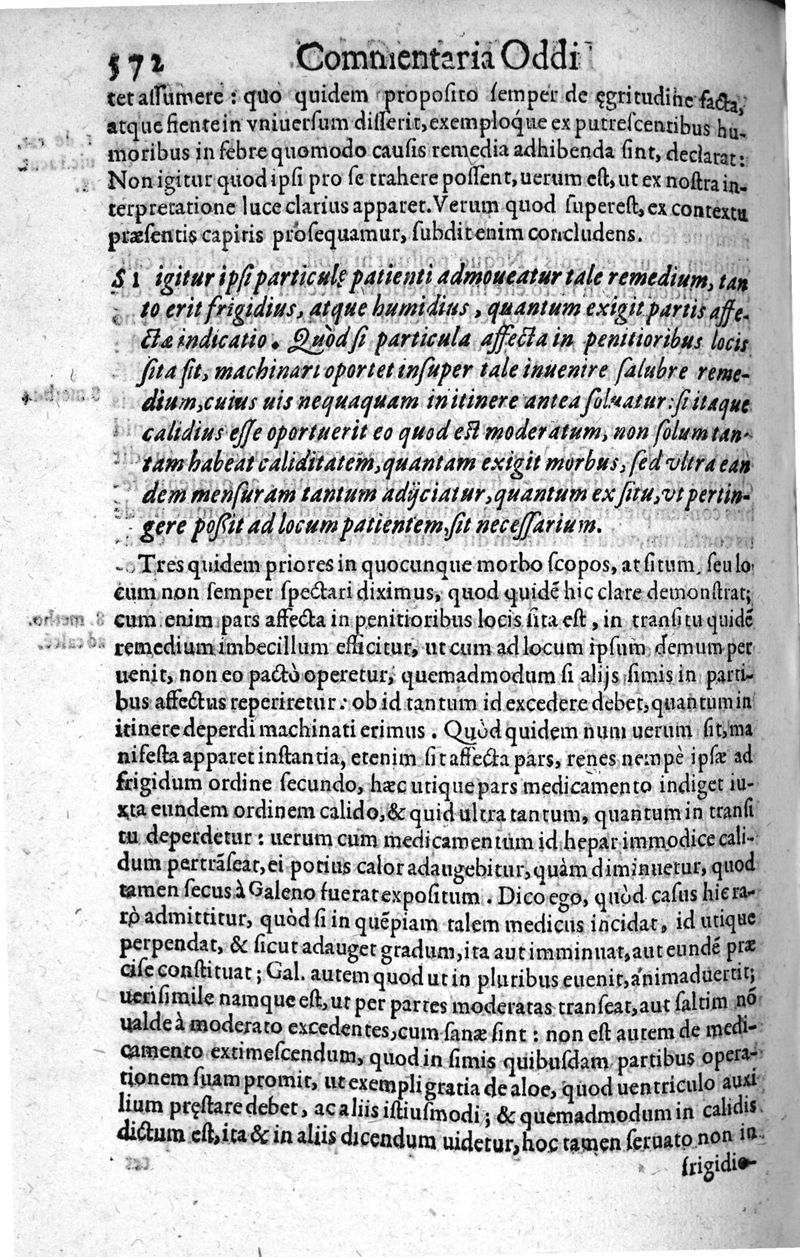 572 Commentaria Oddi
tet assumere : quo quidem proposito semper de ęgritudine facta,
atque fiente in vniuersum disserit, exemploq́ue ex putrescentibus hu-
moribus in febre quomodo causis remedia adhibenda sint, declarat:
Non igitur quod ipsi pro se trahere possent, uerum est, ut ex nostra in-
terpretatione luce clarius apparet. Verum quod superest, ex contextu
præsentis capitis prosequamur, subdit enim concludens.
SI igitur ipsi particulę patienti admoueatur tale remedium, tan
to erit frigidius, atque humidius, quantum exigit partis affe-
ctæ indicatio. Quòd si particula affecta in penitioribus locis
sita sit, machinari oportet insuper tale inuenire salubre reme-
dium, cuius uis nequaquam in itinere antea soluatur: si itaque
calidius esse oportuerit eo quod est moderatum, non solum tan-
tam habeat caliditatem, quantam exigit morbus, sed vltra ean
dem mensuram tantum adijciatur, quantum ex situ, vt pertin-
gere possit ad locum patientem, sit necessarium.
Tres quidem priores in quocunque morbo scopos, at situm, seu lo
cum non semper spectari diximus, quod quidẽ hic clare demonstrat;
cum enim pars affecta in penitioribus locis sita est, in transitu quidẽ
remedium imbecillum efficitur, ut cum ad locum ipsum demum per
uenit, non eo pactò operetur, quemadmodum si alijs simis in parti-
bus affectus reperiretur: ob id tantum id excedere debet, quantum in
itinere deperdi machinati erimus. Quòd quidem num uerum sit, ma
nifesta apparet instantia, etenim sit affecta pars, renes nempè ipsæ ad
frigidum ordine secundo, hæc utique pars medicamento indiget iu-
xta eundem ordinem calido, & quid ultra tantum, quantum in transi
tu deperdetur: uerum cum medicamentum id hepar immodice cali-
dum pertrãseat, ei potius calor adaugebitur, quàm diminuetur, quod
tamen secus à Galeno fuerat expositum. Dico ego, quòd casus hic ra-
rò admittitur, quòd si in quẽpiam talem medicus incidat, id utique
perpendat, & sicut adauget gradum, ita aut imminuat, aut eundẽ præ
cise constituat; Gal. autem quod ut in pluribus euenit, animaduertit;
uerisimile namque est, ut per partes moderatas transeat, aut saltim nõ
ualde à moderato excedentes, cum sanæ sint: non est autem de medi-
camento extimescendum, quod in simis quibusdam partibus opera-
tionem suam promit, ut exempli gratia de aloe, quod uentriculo auxi
lium pręstare debet, ac aliis istiusmodi; & quemadmodum in calidis
dictum est, ita & in aliis dicendum uidetur, hoc tamen seruato non in
frigidio-